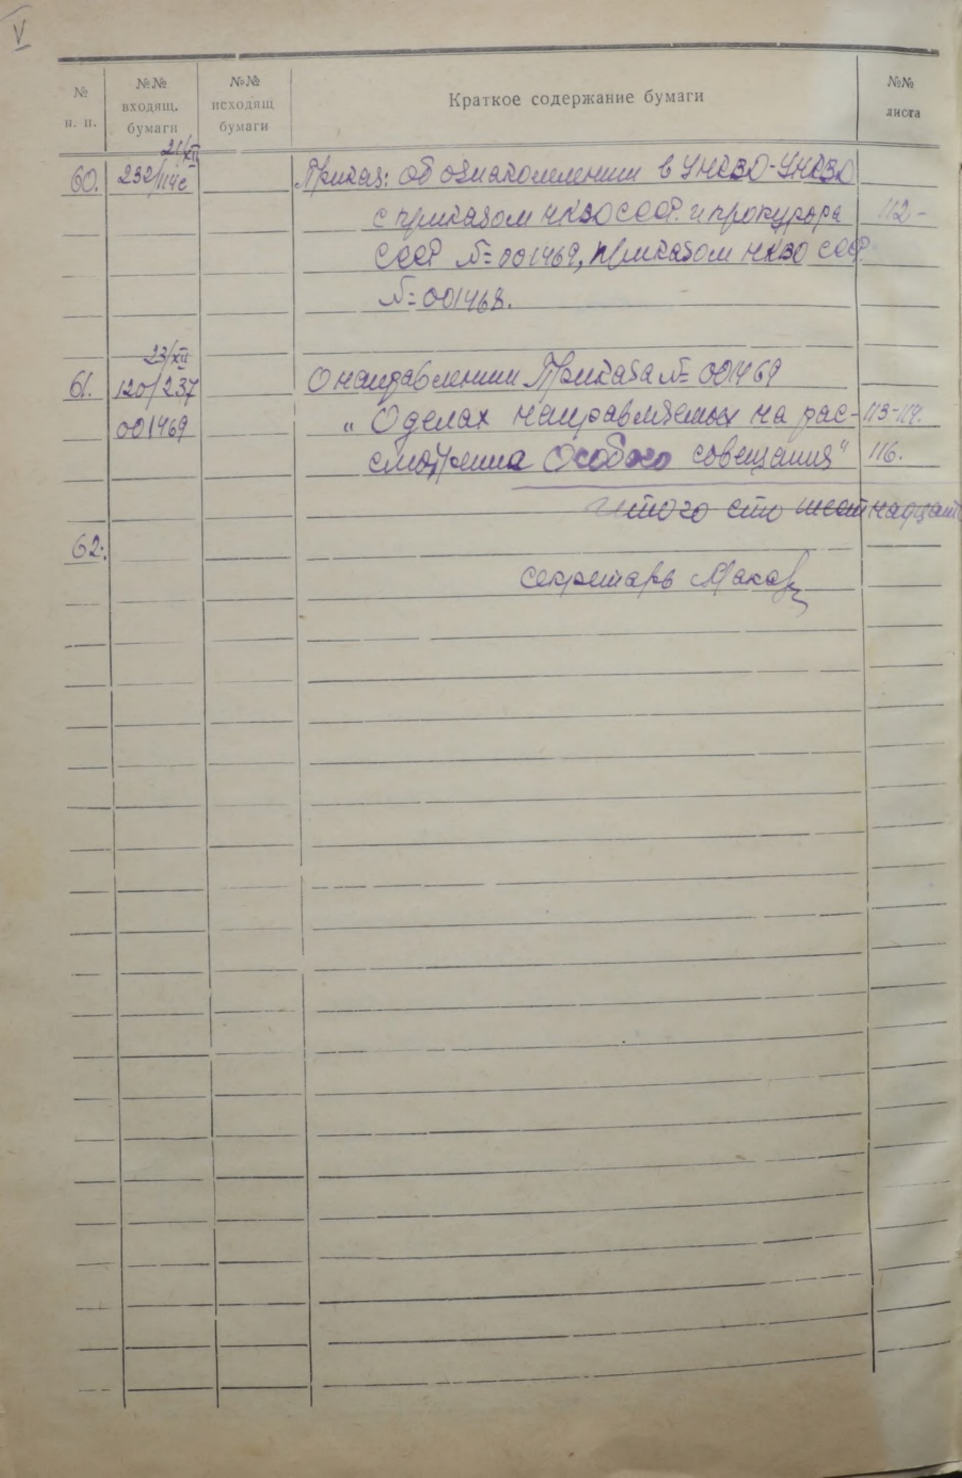 V
№ п. п.
№№ входящ. бумаги
№№ исходящ бумаги
Краткое содержание бумаги
№№ листа
21/XII
60. 232/114с Приказ: об ознакомлении в УНКВД-УНКВД
с приказом НКВД СССР. и прокурора 112-
СССР №=001469, приказом НКВД СССР.
№=001468.
23/XII
61. 120/237 О направлении Приказа №=001469
001469 „О делах направляемых на рас- 113-114.
смотрения Особого совещания“ 116.
итого сто шестнадцать
62.
Секретарь